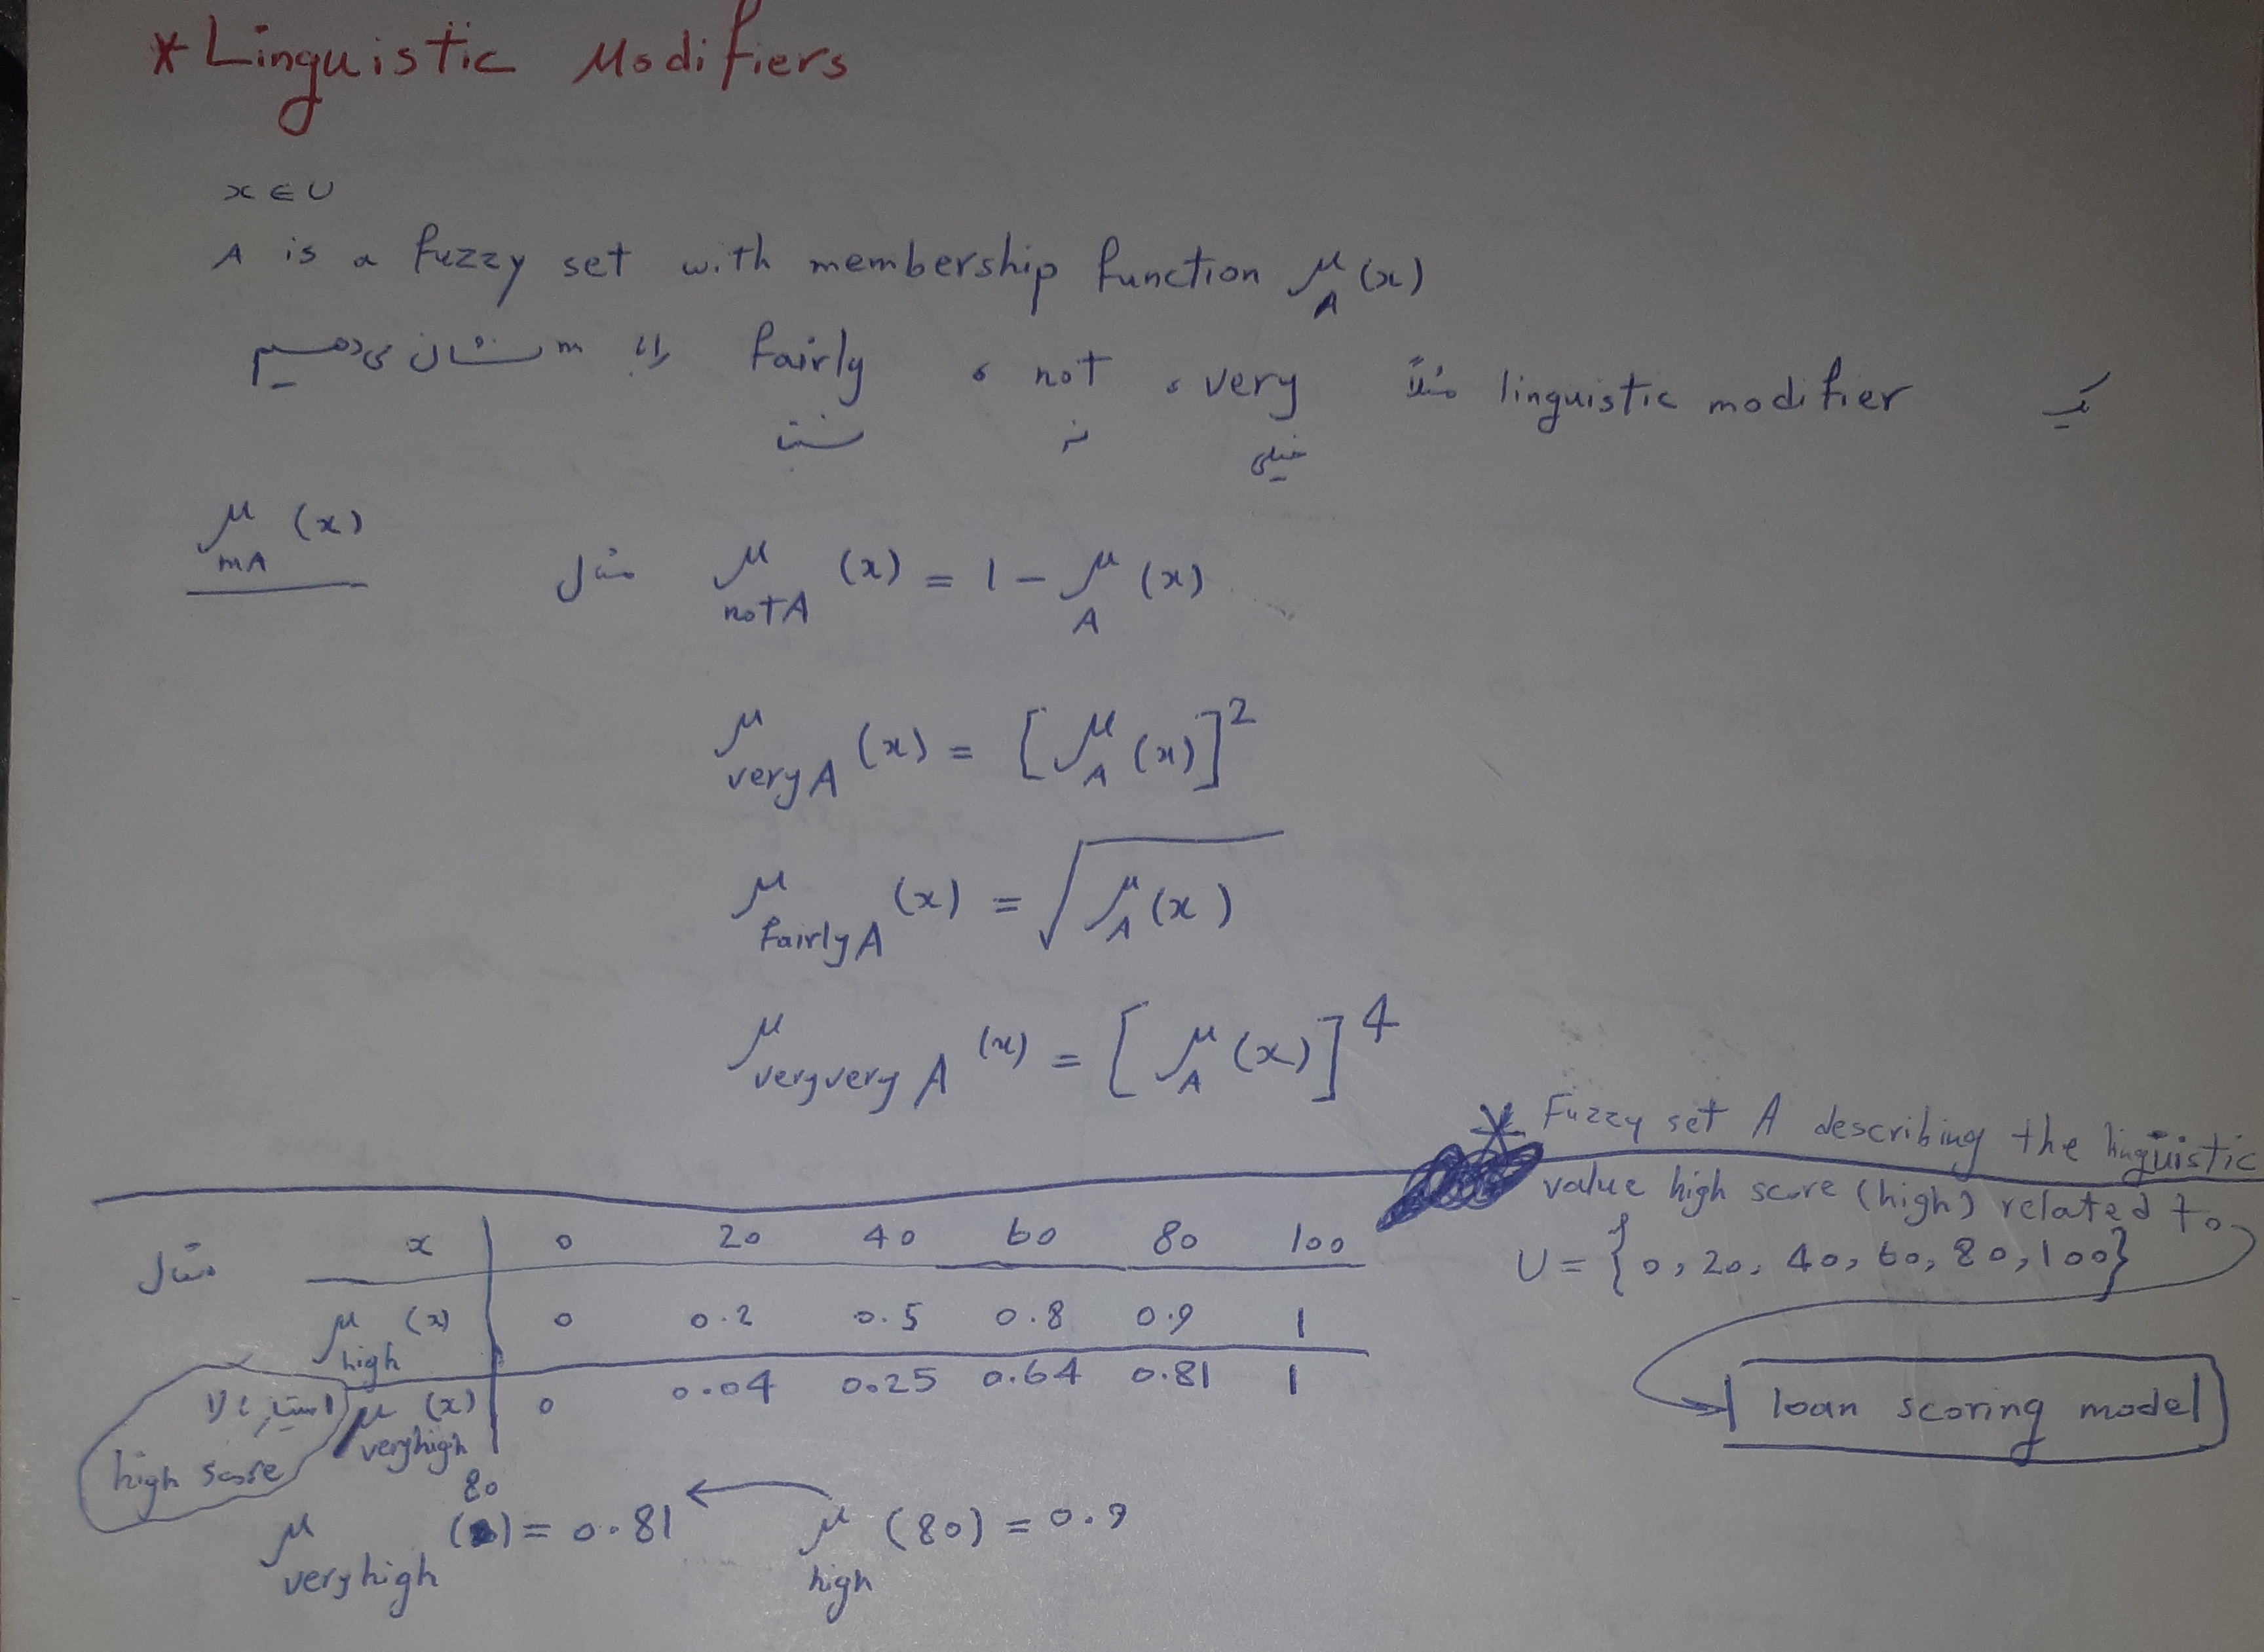 * Linguistic Modifiers
x ∈ U
A is a fuzzy set with membership function μ_A (x)
یک linguistic modifier مثلاً very ، not ، fairly را با m نشان می‌دهیم
خیلی نه نسبتاً
μ_mA (x) مثال μ_notA (x) = 1 - μ_A (x)
μ_very A (x) = [μ_A (x)]^2
μ_fairly A (x) = √μ_A (x)
μ_very very A (x) = [μ_A (x)]^4
* Fuzzy set A describing the linguistic
value high score (high) related to
U = {0, 20, 40, 60, 80, 100}
loan scoring model
مثال x 0 20 40 60 80 100
μ_high (x) 0 0.2 0.5 0.8 0.9 1
μ_very high (x) 0 0.04 0.25 0.64 0.81 1
امتیاز بالا
high score
μ_very high (80) = 0.81 ← μ_high (80) = 0.9